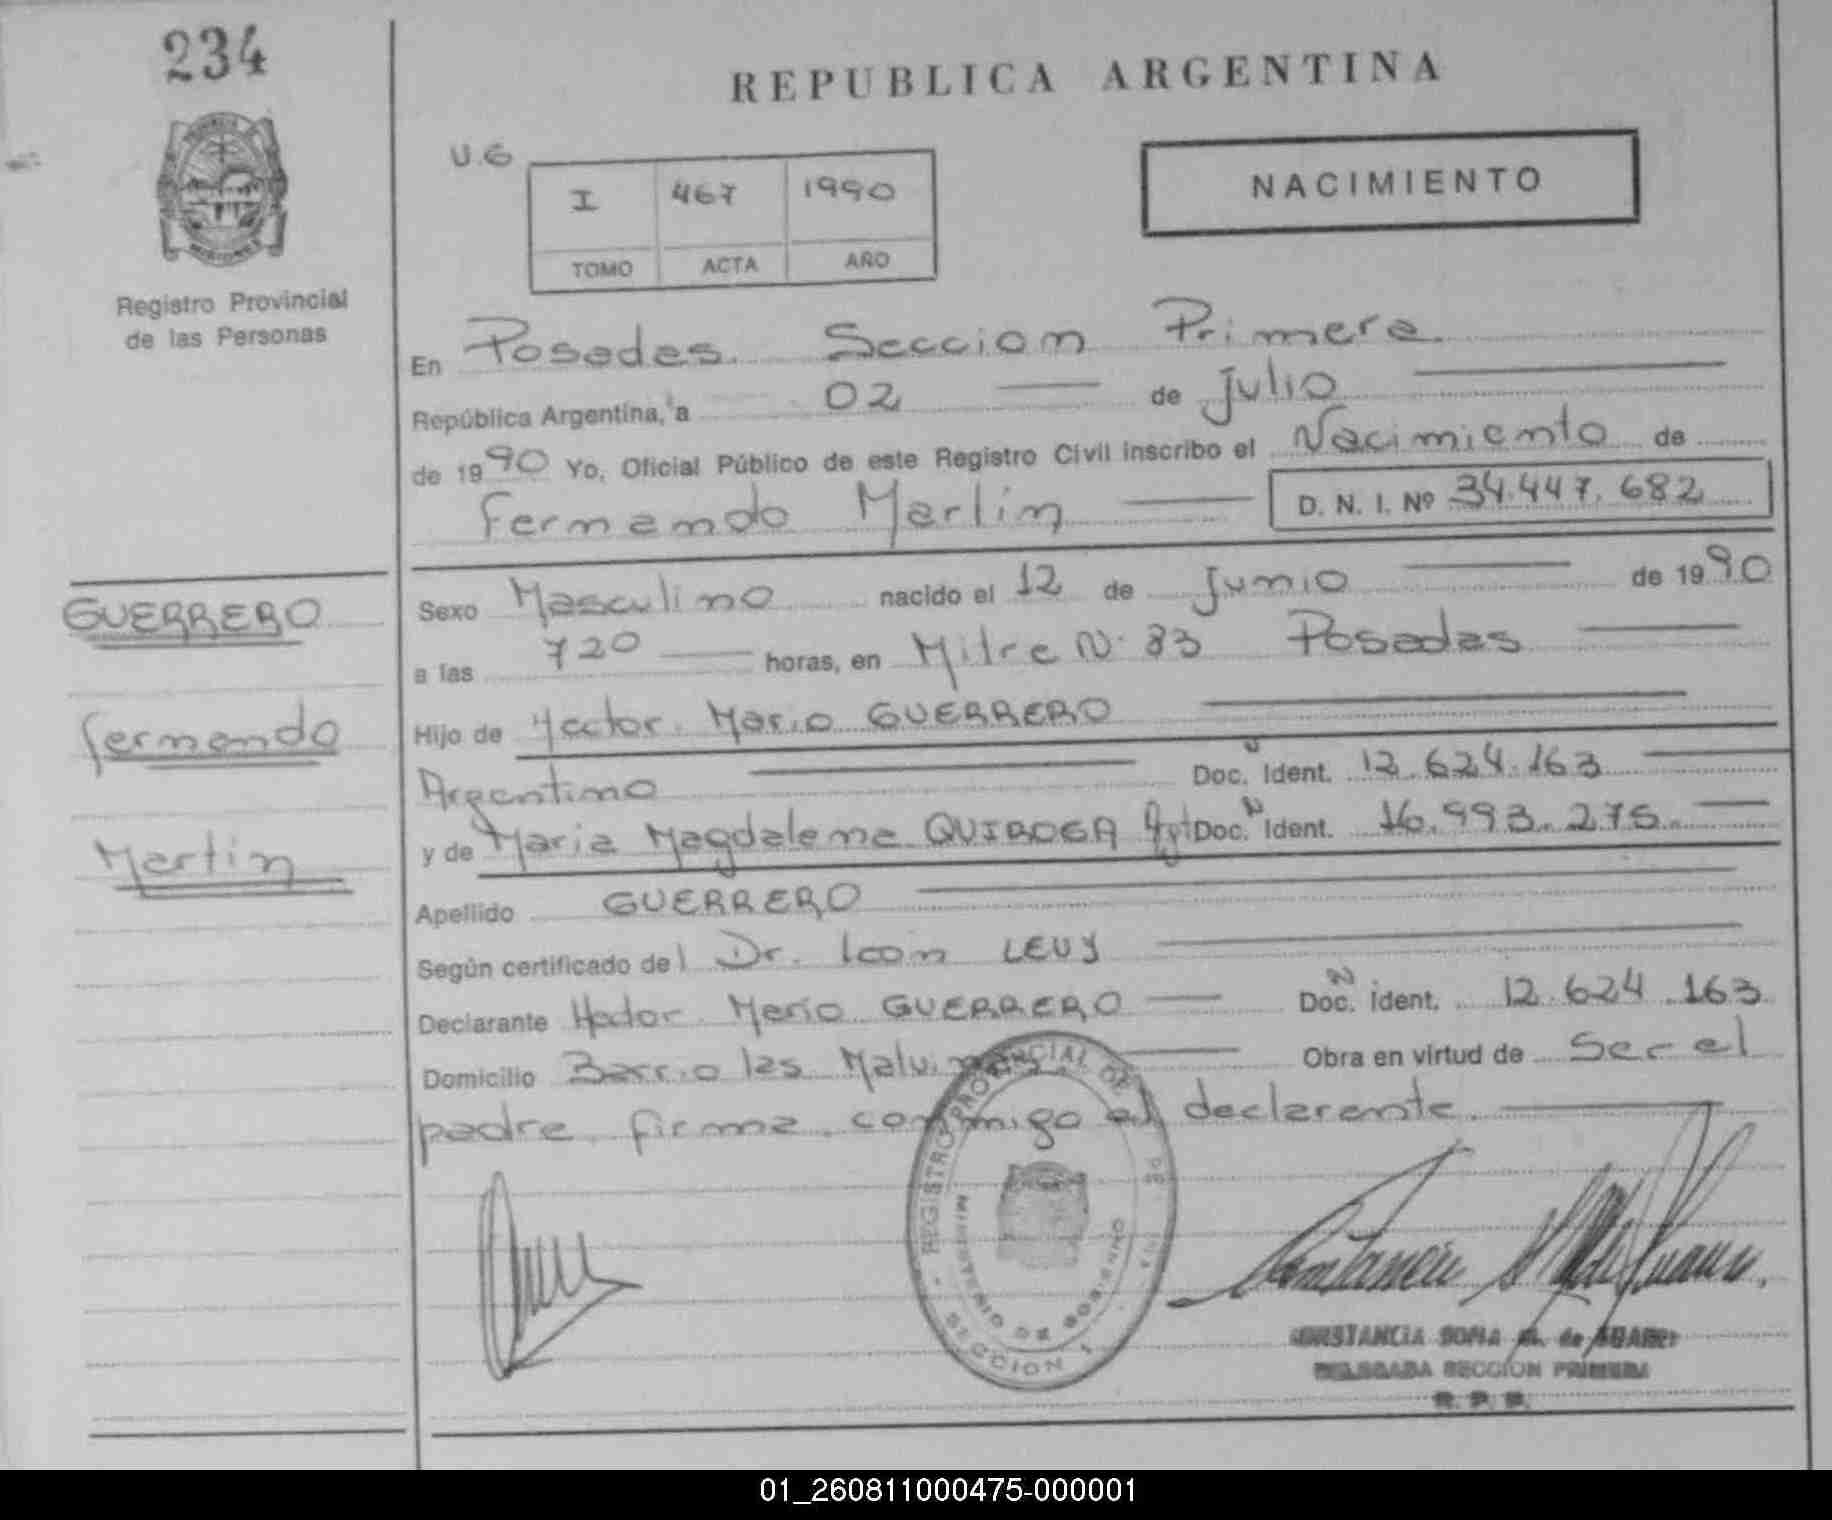 234
REPUBLICA ARGENTINA
U.G
I 467 1990
TOMO ACTA AÑO
NACIMIENTO
Registro Provincial
de las Personas
En Posadas. Seccion Primera.
República Argentina, a 02 de Julio
de 1990 Yo, Oficial Público de este Registro Civil inscribo el Nacimiento de
Fernando Martin D. N. I. Nº 34.447.682
GUERRERO
Fernando
Martin
Sexo Masculino nacido el 12 de Junio de 1990
a las 720 horas, en Mitre N. 83 Posadas
Hijo de Hector Mario GUERRERO
Argentino Doc. N Ident. 12.624.163
y de Maria Magdalena QUIROGA Agt Doc. N Ident. 16.993.275.
Apellido GUERRERO
Según certificado del Dr. León LEVY
Declarante Hector Mario GUERRERO Doc. N Ident. 12.624.163
Domicilio Barrio las Malvinas Obra en virtud de Ser el
padre firma conmigo el declarante.
REGISTRO PROVINCIAL DE
MINISTERIO DE GOBIERNO
SECCION 1
CONSTANCIA SOFIA de
DELEGADA SECCION PRIMERA
R. P. P.
01_260811000475-000001